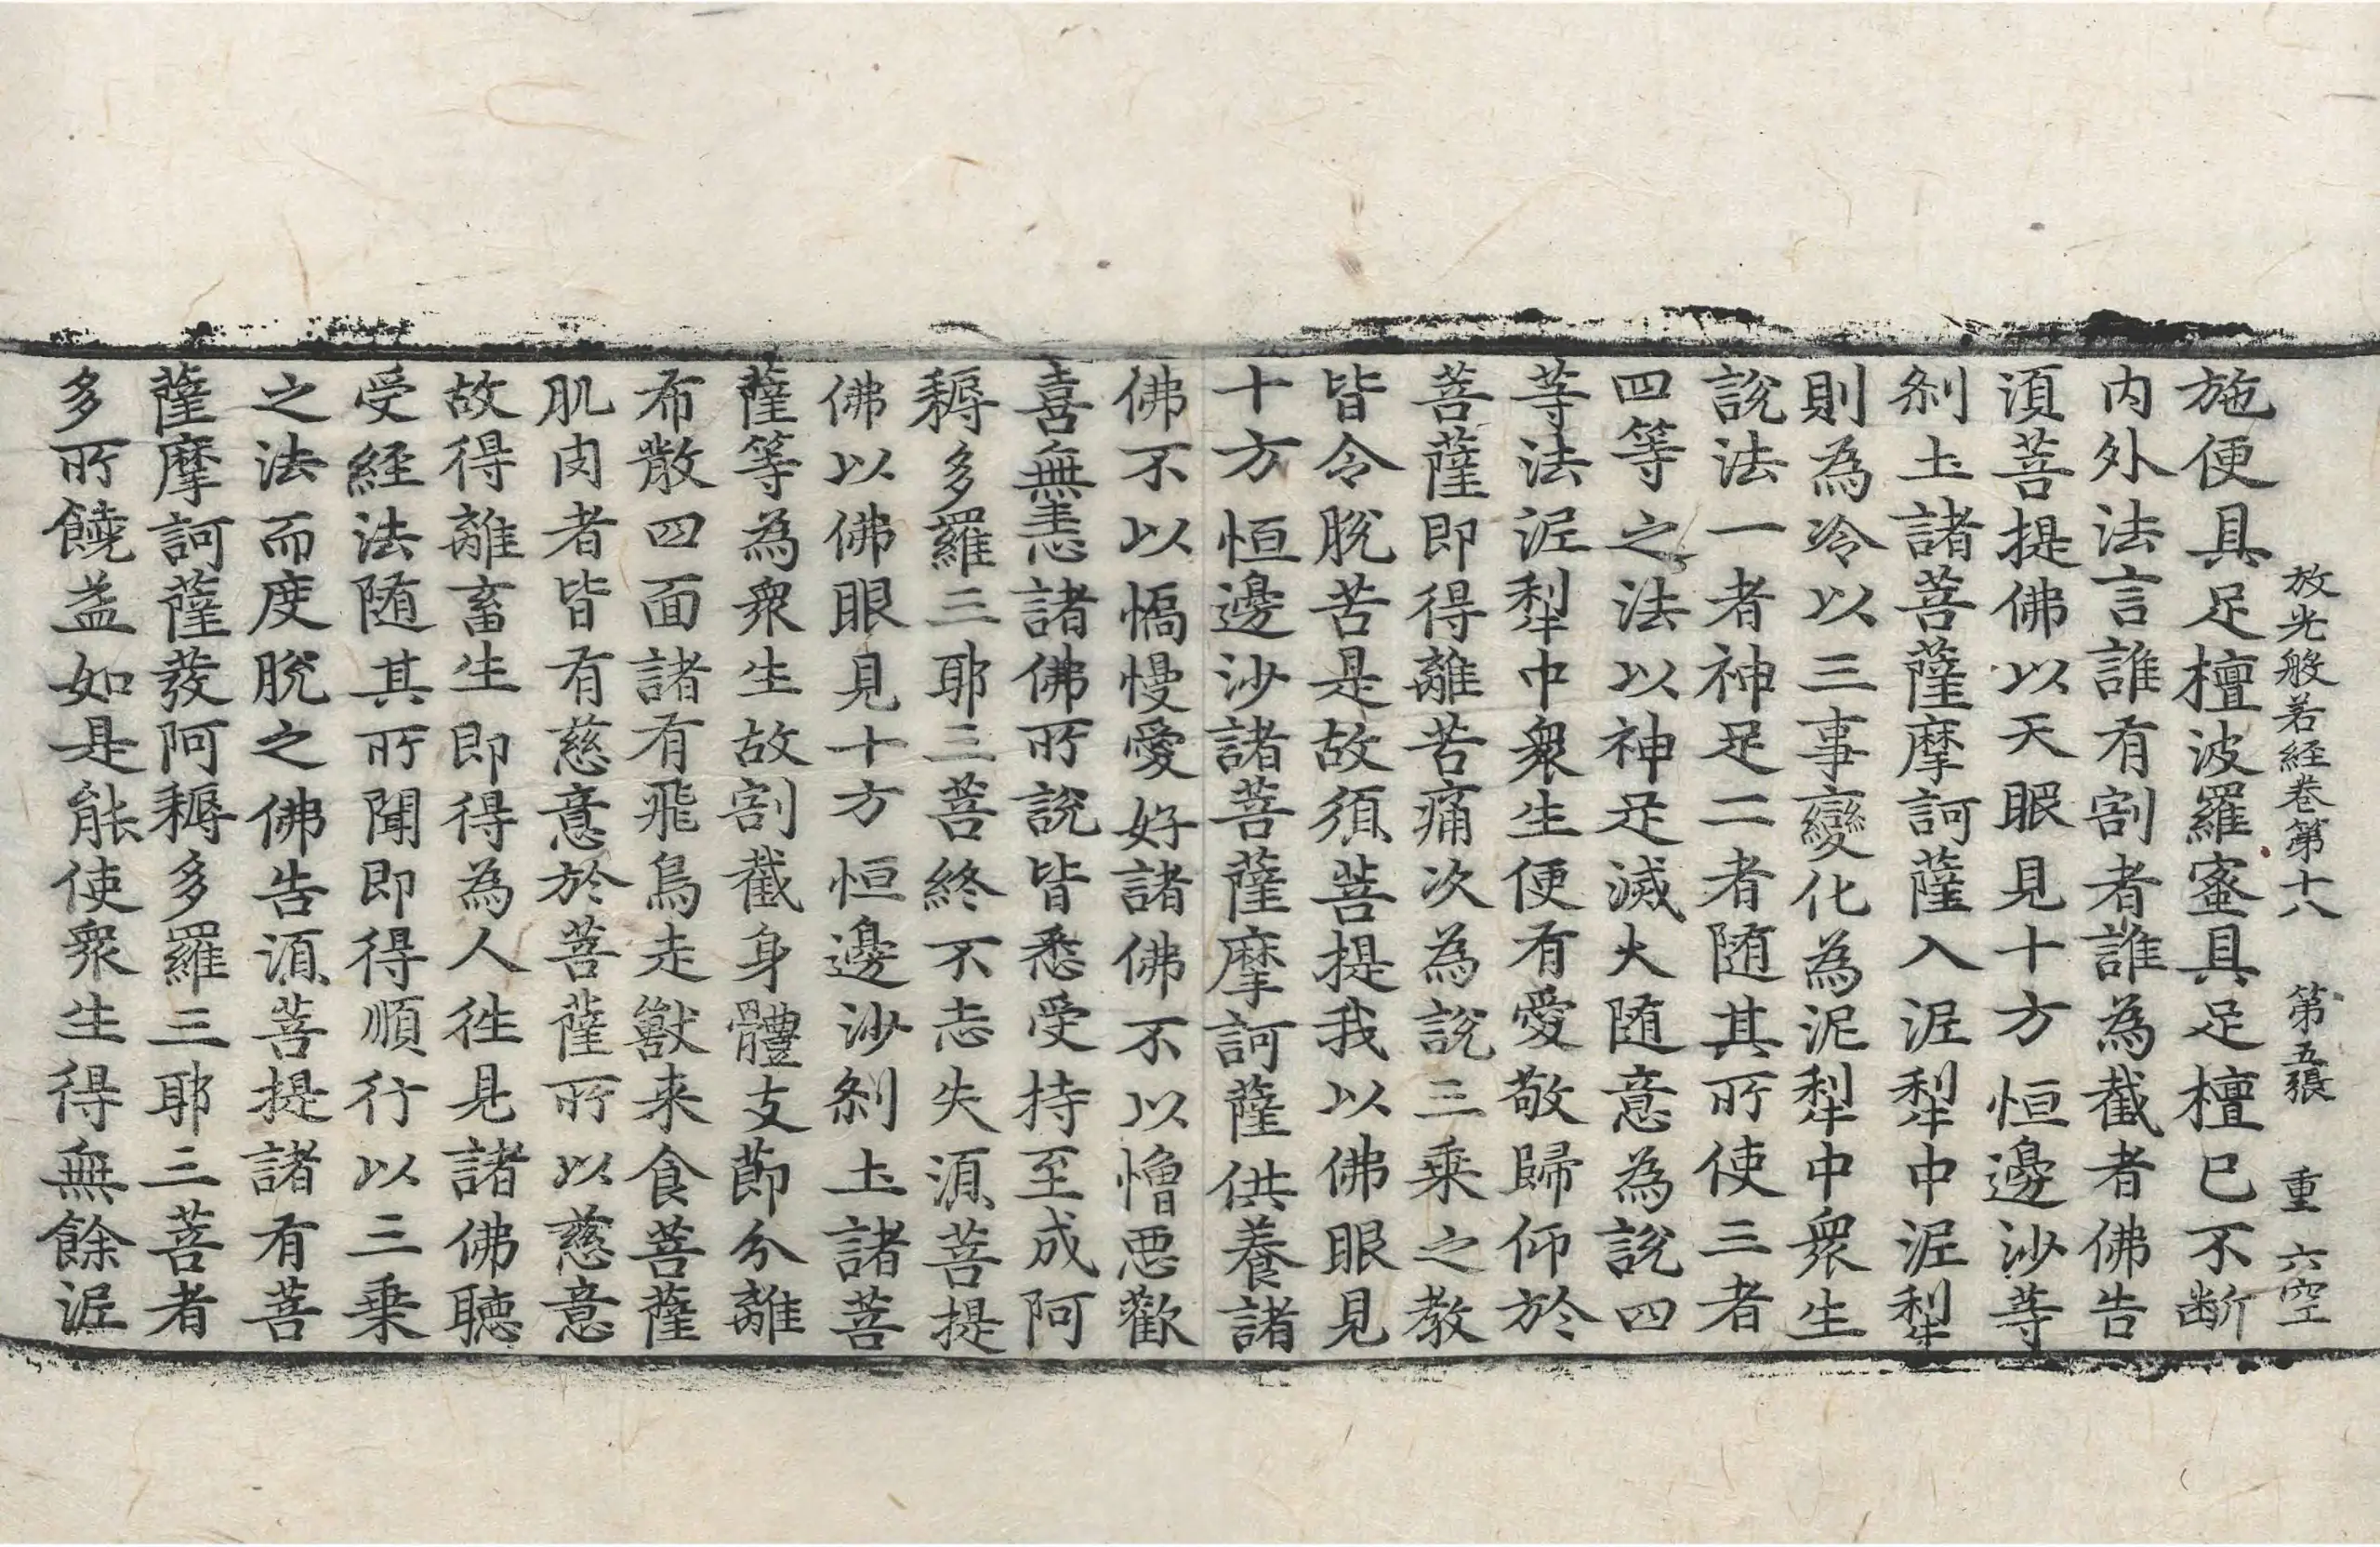 放光般若経卷第十八 第五張 重 六空
施便具足檀波羅蜜具足檀已不断
内外法言誰有割者誰為截者佛告
湏菩提佛以天眼見十方恒邊沙等
刹土諸菩薩摩訶薩入泥犁中泥犁
則為冷以三事變化為泥犁中衆生
說法一者神足二者随其所使三者
四等之法以神足滅火随意為說四
等法泥犁中衆生便有愛敬歸仰於
菩薩即得離苦痛次為說三乗之教
皆令脫苦是故須菩提我以佛眼見
十方恒邊沙諸菩薩摩訶薩供養諸
佛不以憍慢愛好諸佛不以憎惡歡
喜無恚諸佛所說皆悉受持至成阿
耨多羅三耶三菩終不忘失湏菩提
佛以佛眼見十方恒邊沙刹土諸菩
薩等為衆生故割截身體支節分離
布散四面諸有飛鳥走獸来食菩薩
肌肉者皆有慈意於菩薩所以慈意
故得離畜生即得為人徃見諸佛聴
受経法随其所聞即得順行以三乗
之法而度脫之佛告湏菩提諸有菩
薩摩訶薩發阿耨多羅三耶三菩者
多所饒益如是能使衆生得無餘泥